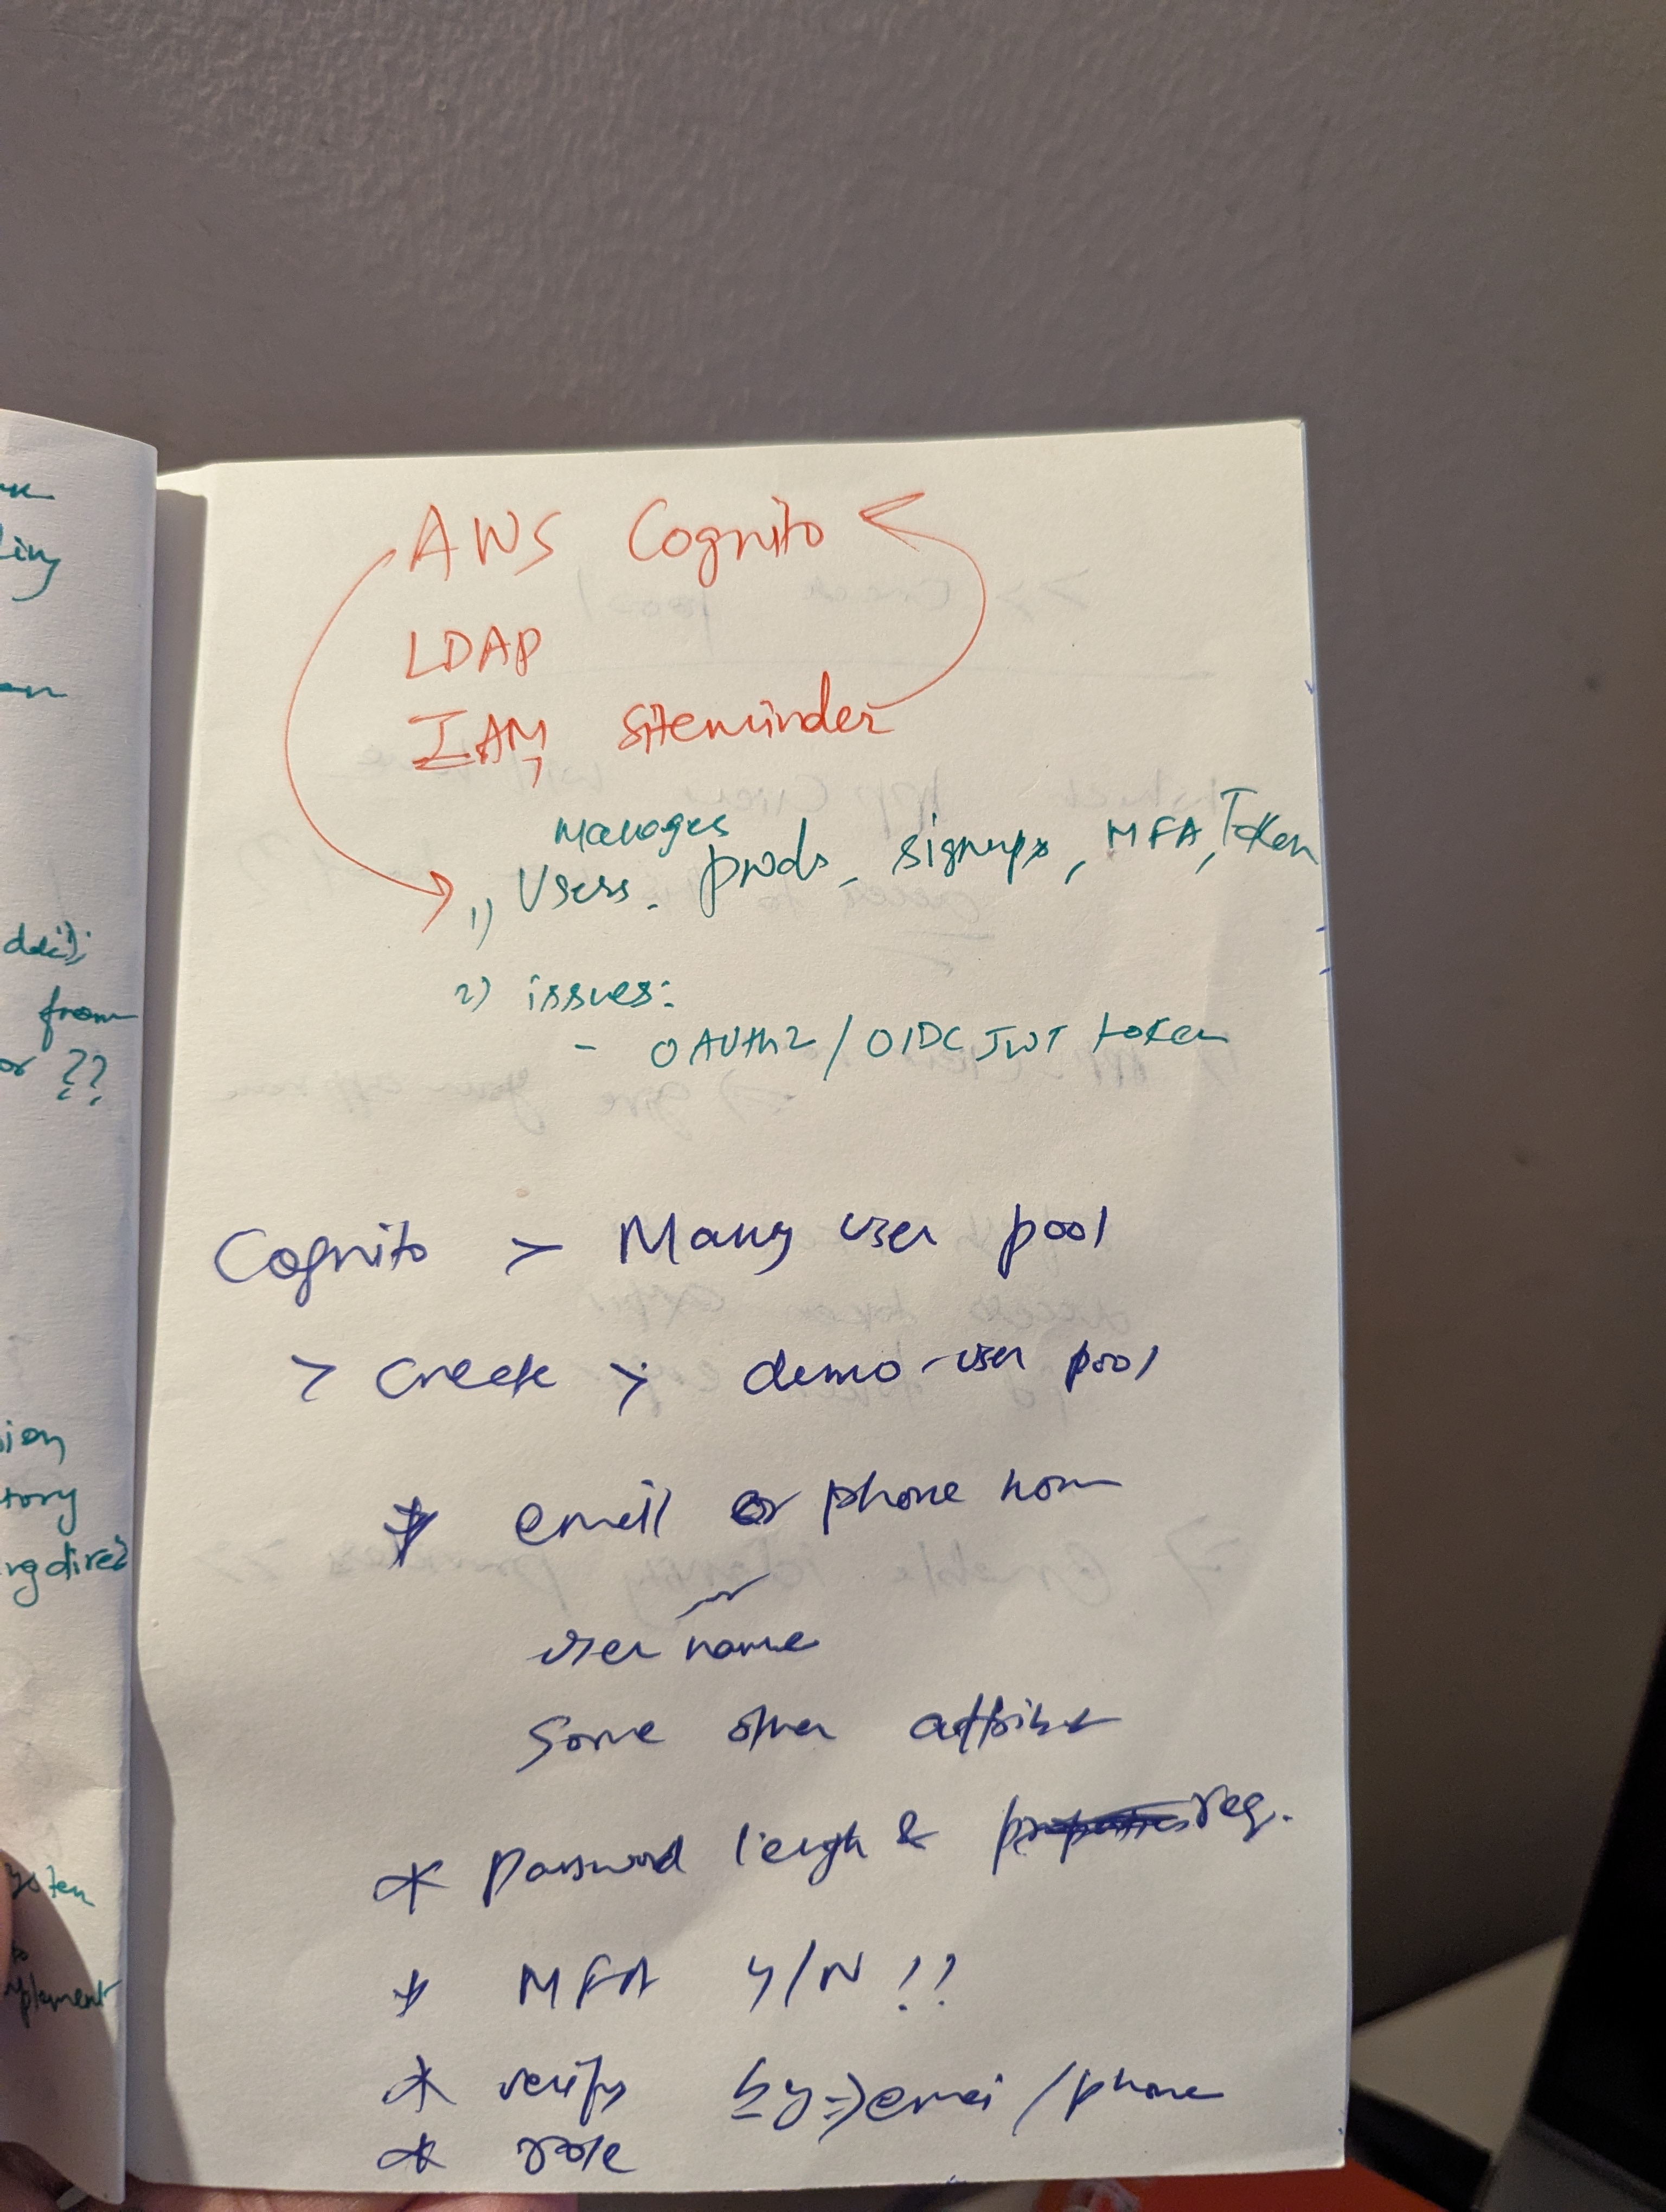 AWS Cognito
LDAP
IAM, Siteminder
manages
1) Users. pwds, signups, MFA, Token
2) issues:
- OAUTH2 / OIDC JWT token
Cognito > Many user pool
> create > demo-user pool
* email or phone
user name
Some other
* Password & req.
* MFA Y/N !?
* verify by => emai / phone
* role
from
or ??